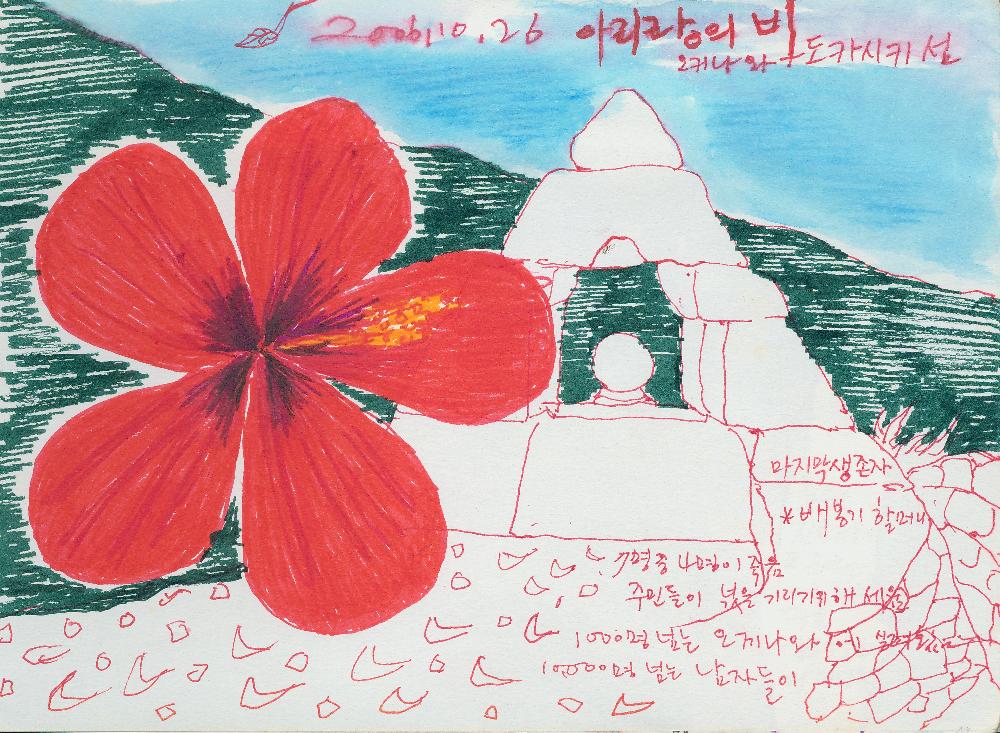 2006.10.26 아리랑의 비
오키나와 도카시키 섬
마지막생존자
*배봉기 할머니
7명중 4명이 죽음
주민들이 넋을 기리기위해 세움
1000명 넘는 오끼나와
10000명 넘는 남자들이